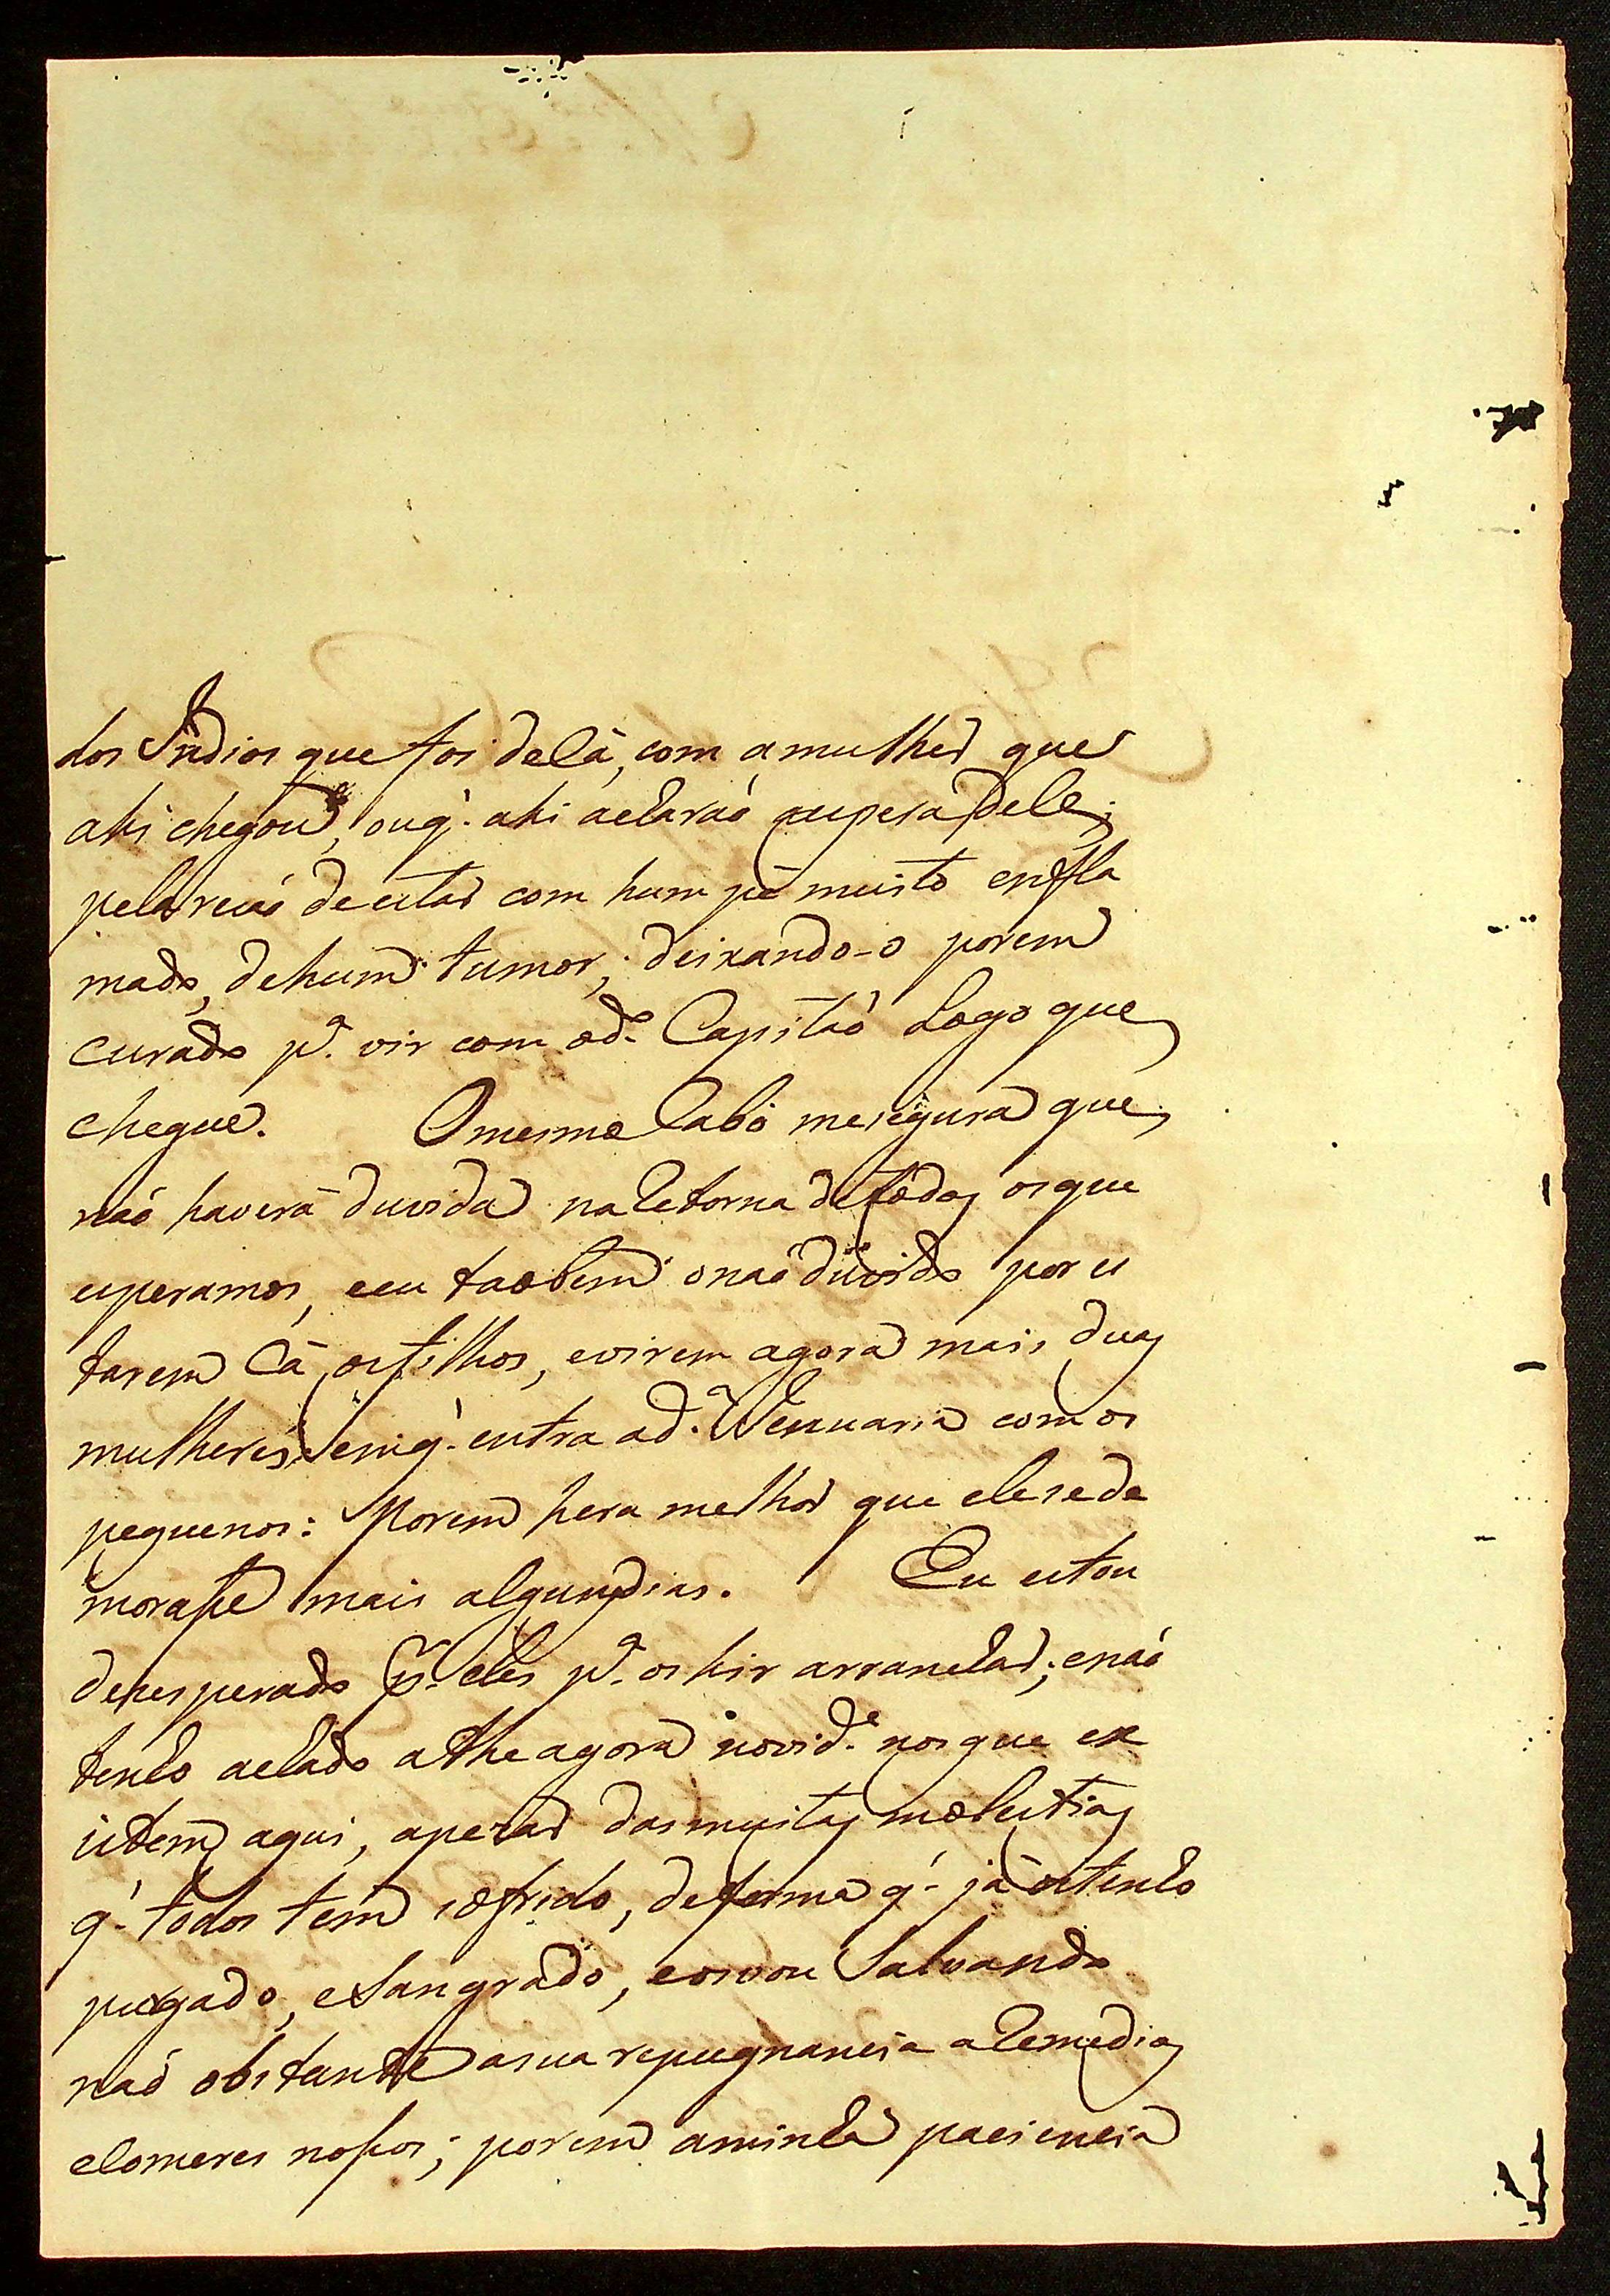 dos Indios que foi de lá, com a mulher que
ahi chegou, ou q.' ahi acharaó a espera dele;
pela rezaó de estar com hum pé muito enfla
mado, de hum tumor; deixando-o porem
curado p.ª vir com o d.º Capitaó Logo que
chegue. O mesmo Cabo me segura que
naó haverá duvida na Retorna de todos os que
esperamos, e eu taobem o naó duvido por es
tarem Cá os filhos, e virem agora mais duas
mulheres, em q.' entra a d.ª Jenuaria com os
pequenos: Porem hera melhor que ele se de
morasse mais alguns dias. Eu estou
desesperado p.r eles p.ª os hir arranchar; e naó
tenho achado athe agora novid.e nos que ex
istem aqui, apezar das muitas molestias
q.' todos tem sofrido, de forma q.' já os tenho
purgado, e Sangrado, e os vou Salvando
naó obstante a sua repugnancia a Remedios
e comeres nossos; porem a minha paciencia